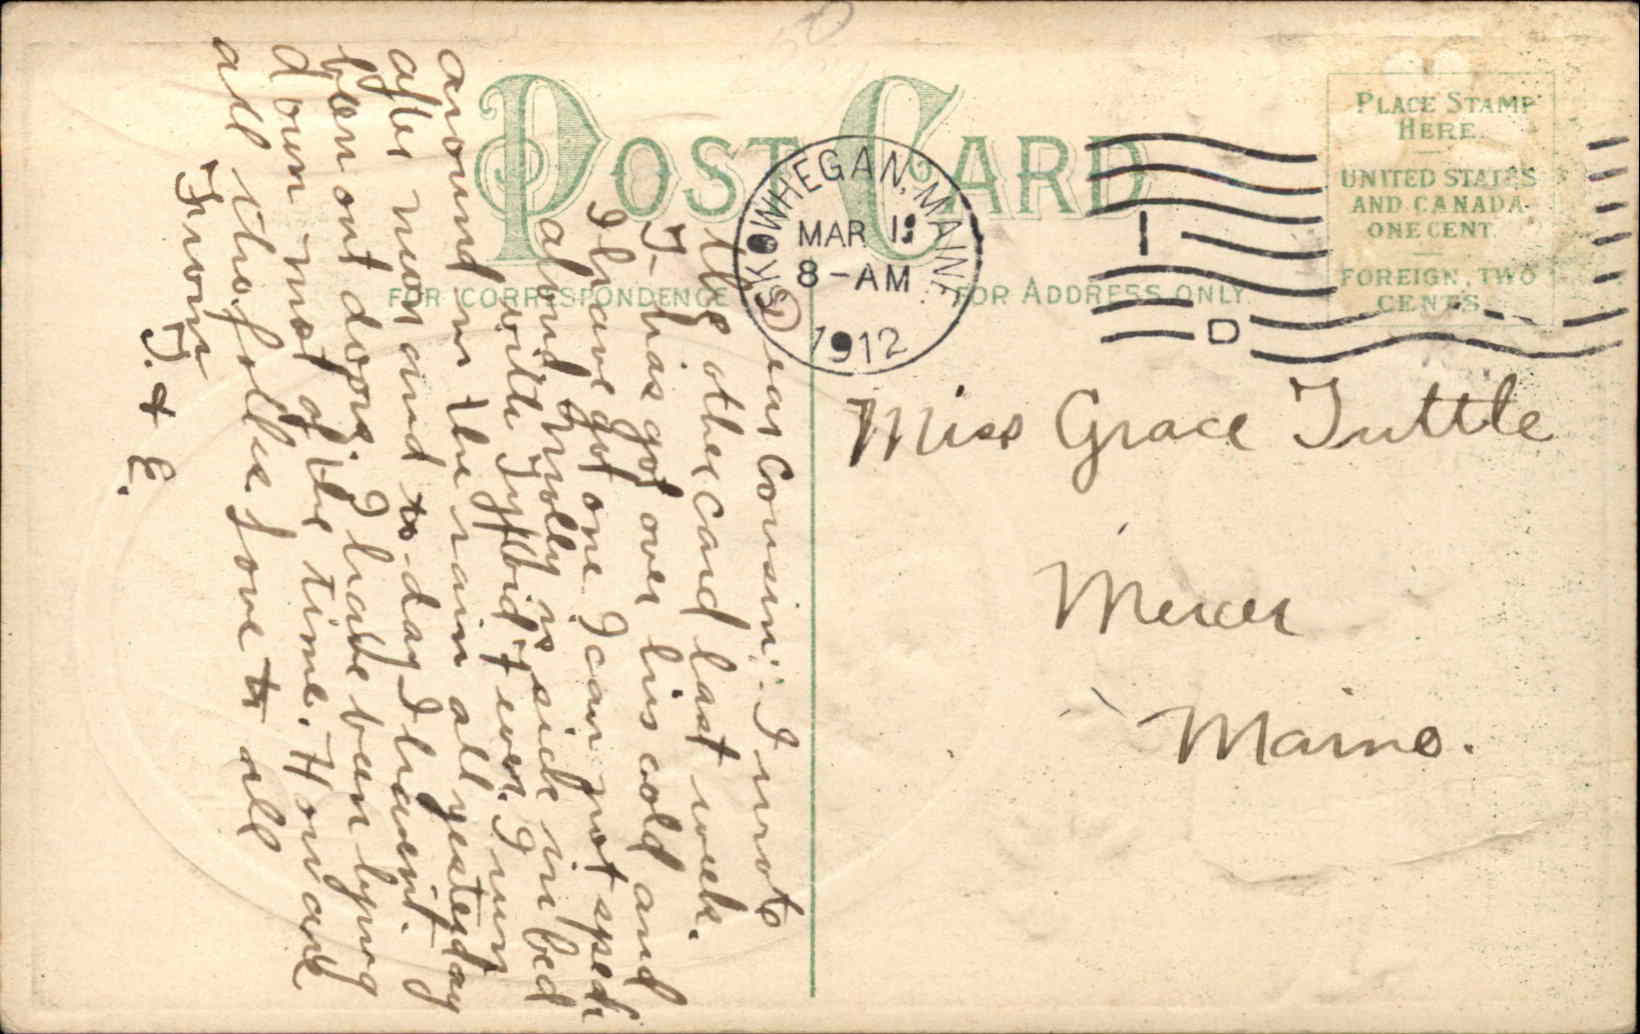 POST CARD
FOR CORRESPONDENCE
FOR ADDRESS ONLY.
PLACE STAMP
HERE.
UNITED STATES
AND CANADA
ONE CENT.
FOREIGN, TWO
CENTS.
SKOWHEGAN, MAINE
MAR
8-AM
1912
1
D
Miss Grace Tuttle
Mercer
Maine.
Dear Cousin:- I wrote
the other card last week.
T- has got over his cold and
I have got one I can not speak
aloud. Molly is sick in bed
with Tyfoid fever. I was
around in the rain all yesterday
after noon and to-day I havent.
been out doors. I have been lying
down most of the time. How are
all the folks. Love to all
From
T. & E.